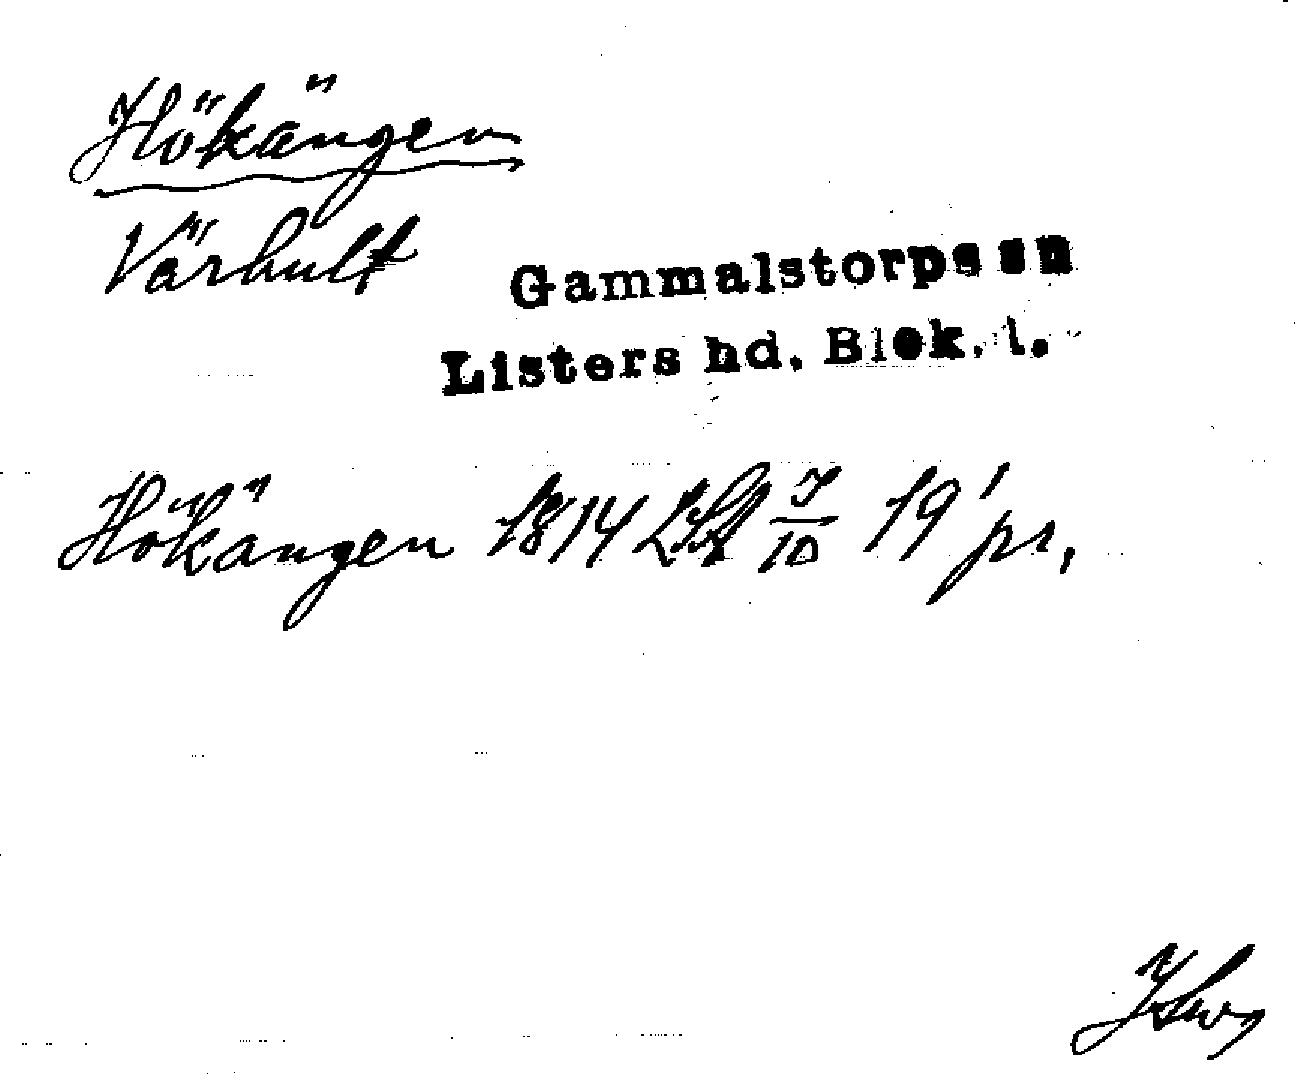 Hökängen
Värhult
Gammalstorps sn
Listers hd. Blek. l.
Hökängen 1814 LSA 7/10 19' pr,